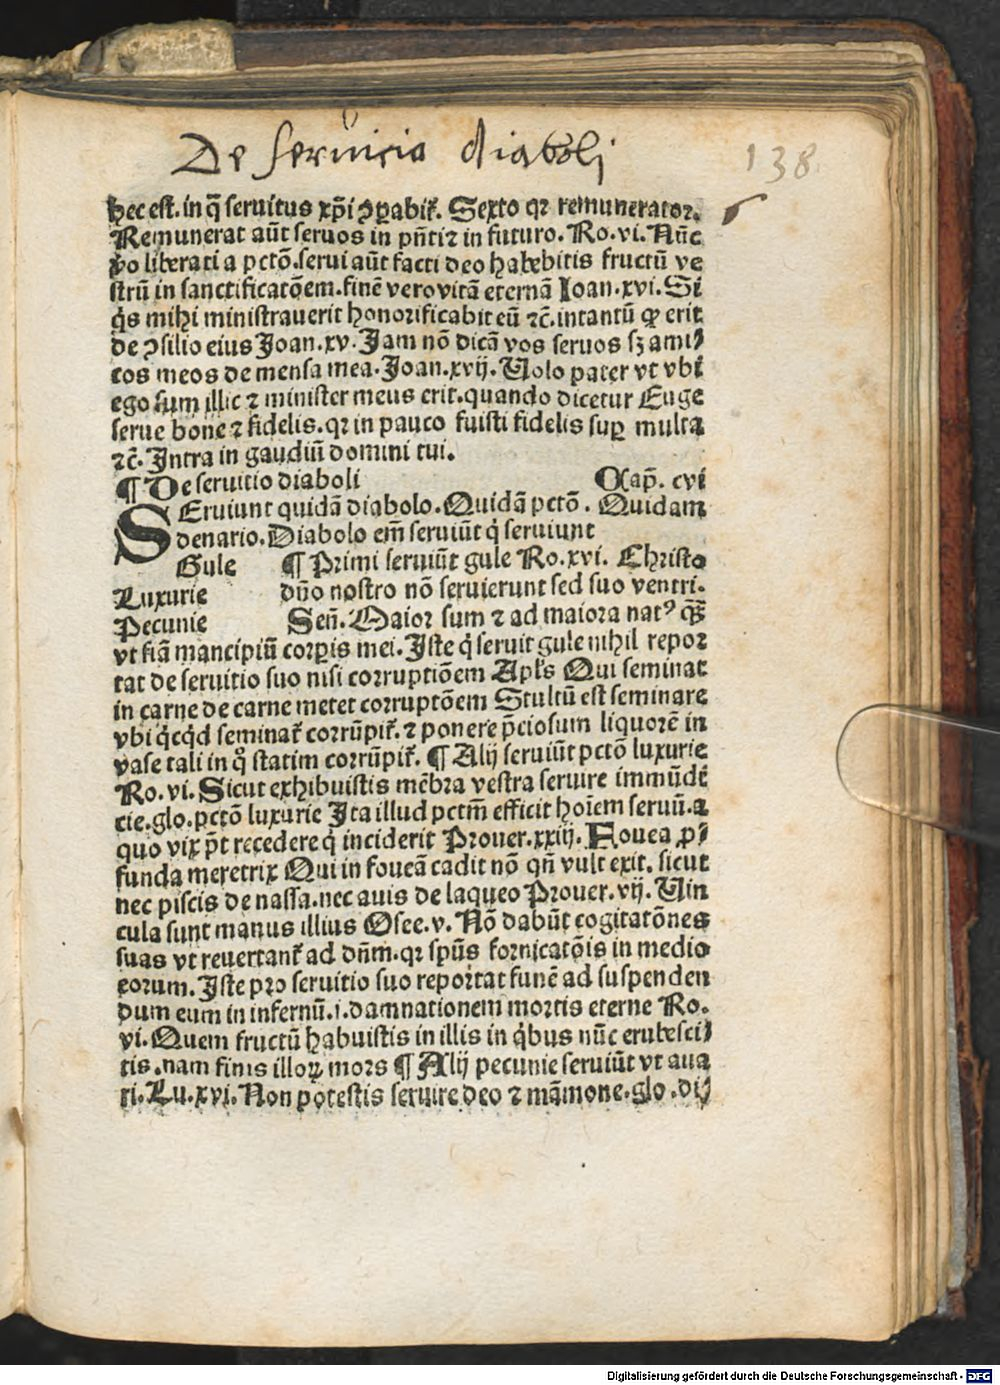 De seruicio diaboli
138
hec est. in q̃ seruitus xp̄i ꝯꝑabit᷑. Sexto qꝛ remunerator.
Remunerat aūt seruos in pn̄ti ⁊ in futuro. Ro. vi. Nūc
ꝟo liberati a pctō. serui aūt facti deo habebitis fructū ve
strū in sanctificatōem. finē vero vitā eternā Ioan. xvi. Si
q̇s mihi ministrauerit honorificabit eū ⁊c̄. intantū ꝙ erit
de ꝯsilio eius Joan. xv. Jam nō dicā vos seruos sꝫ ami⸗
cos meos de mensa mea. Joan. xvij. Uolo pater vt vbi
ego sum illic ⁊ minister meus erit. quando dicetur Euge
serue bone ⁊ fidelis. qꝛ in pauco fuisti fidelis suꝑ multa
⁊c̄. Intra in gaudiū domini tui.
¶ De seruitio diaboli Cap̄. cvi
SEruiunt quidā diabolo. Quidā pctō. Quidam
denario. Diabolo em̄ seruiūt q̇ seruiunt
Gule ¶ Primi seruiūt gule Ro. xvi. Christo
Luxurie dn̄o nostro nō seruierunt sed suo ventri.
Pecunie Sen̄. Maior sum ⁊ ad maiora natꝰ q̃ꝫ
vt fiā mancipiū corꝑis mei. Iste q̇ seruit gule nihil repor
tat de seruitio suo nisi corruptiōem Apl̄s Qui seminat
in carne de carne metet corruptōem Stultū est seminare
vbi q̇cq̇d seminat᷑ corrūpit᷑. ⁊ ponere p̄ciosum liquorē in
vase tali in qͦ statim corrūpit᷑. ¶ Alij seruiūt pctō luxurie
Ro. vi. Sicut exhibuistis mēbra vestra seruire immūdi
cie. glo. pctō luxurie Ita illud pctm̄ efficit hoīem seruū. a
quo vix p̄t recedere q̇ inciderit Prouer. xxiij. Fouea ꝓ⸗
funda meretrix Qui in foueā cadit nō qn̄ vult exit. sicut
nec piscis de nassa. nec auis de laqueo Prouer. vij. Uin
cula sunt manus illius Osee. v. Nō dabūt cogitatōnes
suas vt reuertant᷑ ad dn̄m. qꝛ spūs fornicatōis in medio
eorum. Iste pro seruitio suo reportat funē ad suspenden
dum eum in infernū. i. damnationem mortis eterne Ro.
vi. Quem fructū habuistis in illis in q̇bus nūc erubesci⸗
tis. nam finis illoꝝ mors ¶ Alij pecunie seruiūt vt aua
ri. Lu. xvi. Non potestis seruire deo ⁊ māmone. glo. di⸗
Digitalisierung gefördert durch die Deutsche Forschungsgemeinschaft - DFG